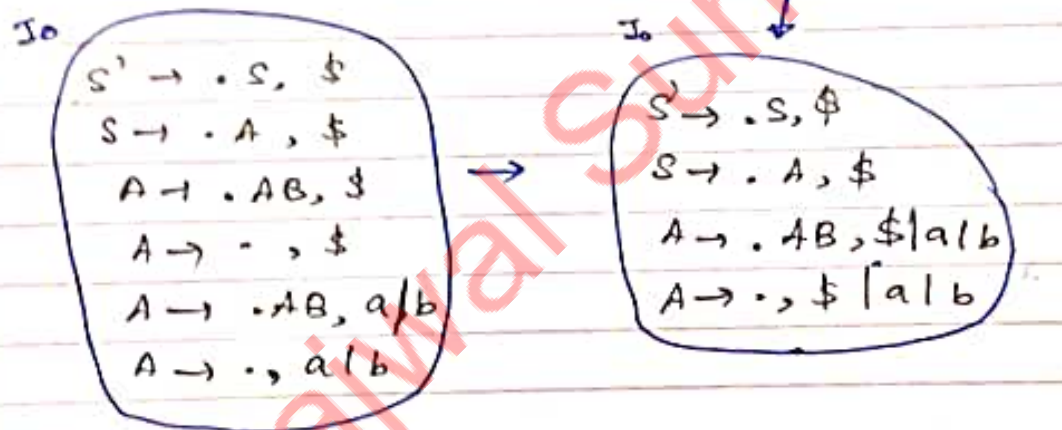 I0
S' → . S, $
S → . A , $
A → . AB, $
A → . , $
A → .AB, a/b
A → ., a l b
I0
S' → .S, $
S → . A, $
A → . AB, $|a|b
A → ., $ |a| b